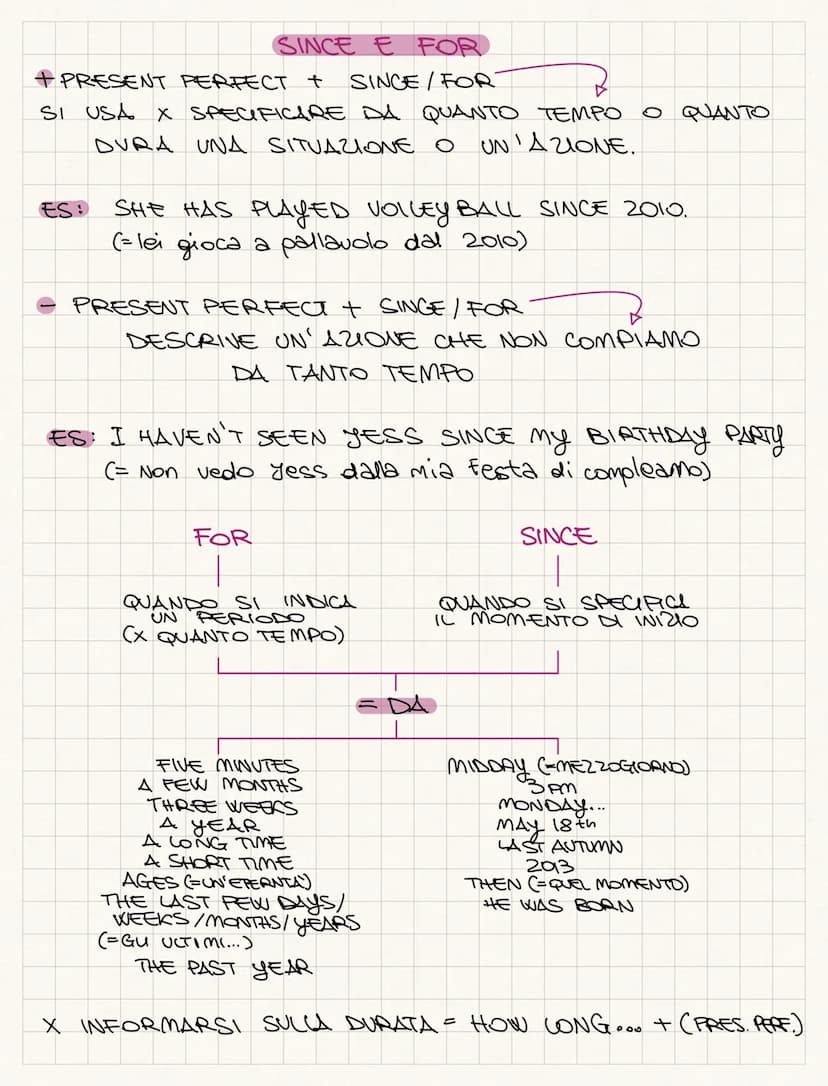 SINCE E FOR
+ PRESENT PERFECT + SINCE/FOR
SI USA X SPECIFICARE DA QUANTO TEMPO O QUANTO
DURA UNA SITUAZIONE O UN'AZIONE.
ES: SHE HAS PLAYED VOLLEYBALL SINCE 2010.
(= lei gioca a pallavolo dal 2010)
- PRESENT PERFECT + SINCE/FOR
DESCRIVE UN'AZIONE CHE NON COMPIAMO
DA TANTO TEMPO
ES: I HAVEN'T SEEN JESS SINCE MY BIRTHDAY PARTY
(= Non vedo Jess dalla mia festa di compleanno)
FOR
SINCE
QUANDO SI INDICA
UN PERIODO
(X QUANTO TEMPO)
QUANDO SI SPECIFICA
IL MOMENTO DI INIZIO
= DA
FIVE MINUTES
A FEW MONTHS
THREE WEEKS
A YEAR
A LONG TIME
A SHORT TIME
AGES (=UN'ETERNITA')
THE LAST FEW DAYS/
WEEKS/MONTHS/YEARS
(=GLI ULTIMI...)
THE PAST YEAR
MIDDAY (=MEZZOGIORNO)
3 PM
MONDAY...
MAY 18th
LAST AUTUMN
2013
THEN (=QUEL MOMENTO)
HE WAS BORN
X INFORMARSI SULLA DURATA = HOW LONG... + (PRES. PERF.)